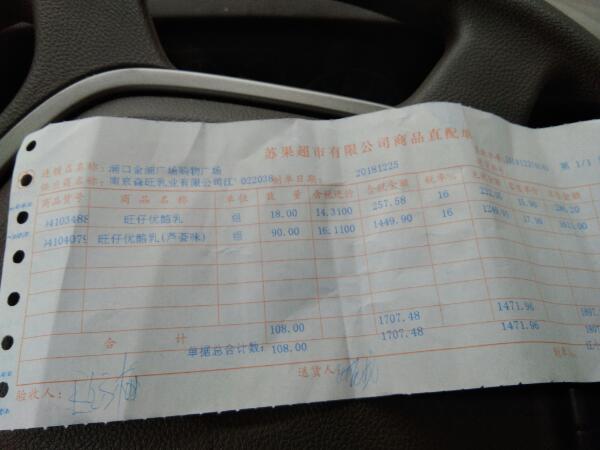 苏果超市有限公司商品直配
连锁店名称：浦口金浦广场购物广场
供应商名称：南京森旺乳业有限公司江 022038 制单日期： 20181225 第 1/1
商品货号 商品名称 单位 数量 含税进价 含税金额 税率%
04103488 旺仔优酪乳 组 18.00 14.3100 257.58 16 15.90 286.20
04104079 旺仔优酪乳(芦荟味) 组 90.00 16.1100 1449.90 16 17.90 1611.00
合计 108.00 1707.48 1471.96
单据总合计数： 108.00 1707.48 1471.96
验收人： 送货人：